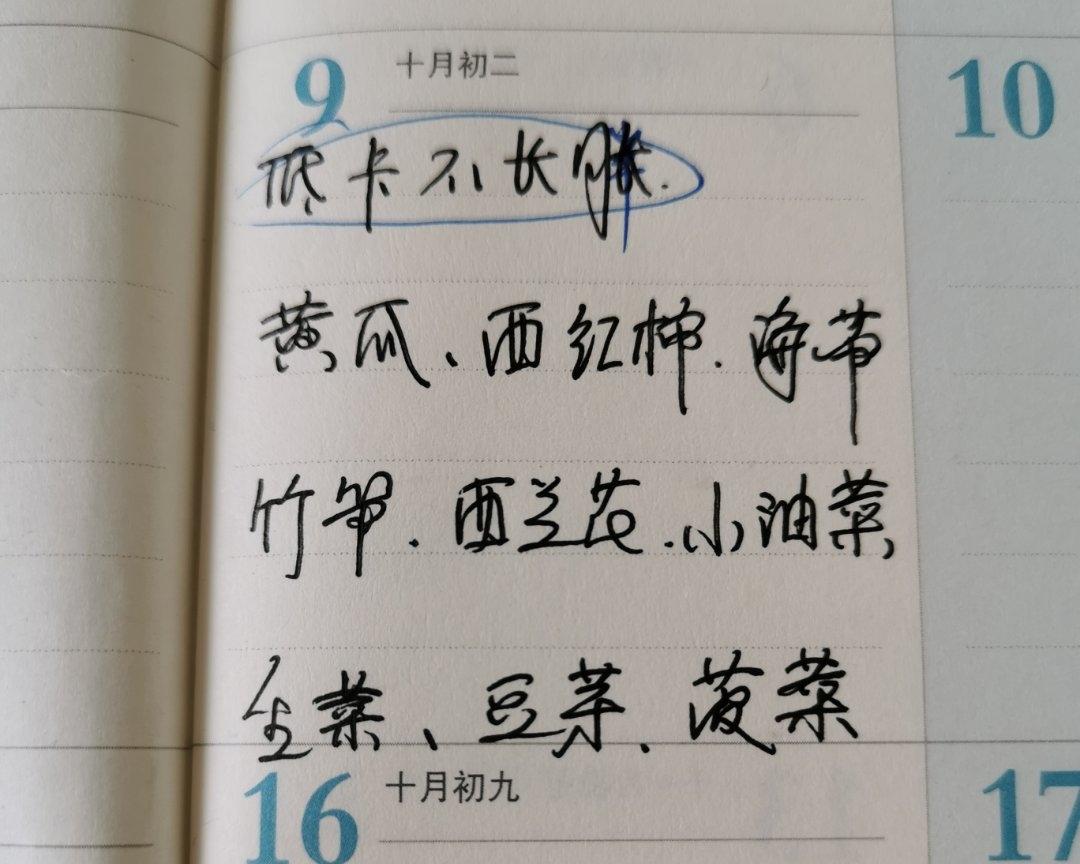 9 十月初二
10
低卡不长胖.
黄瓜、西红柿.海带
竹笋.西兰花.小油菜,
生菜、豆芽、菠菜
16 十月初九
17